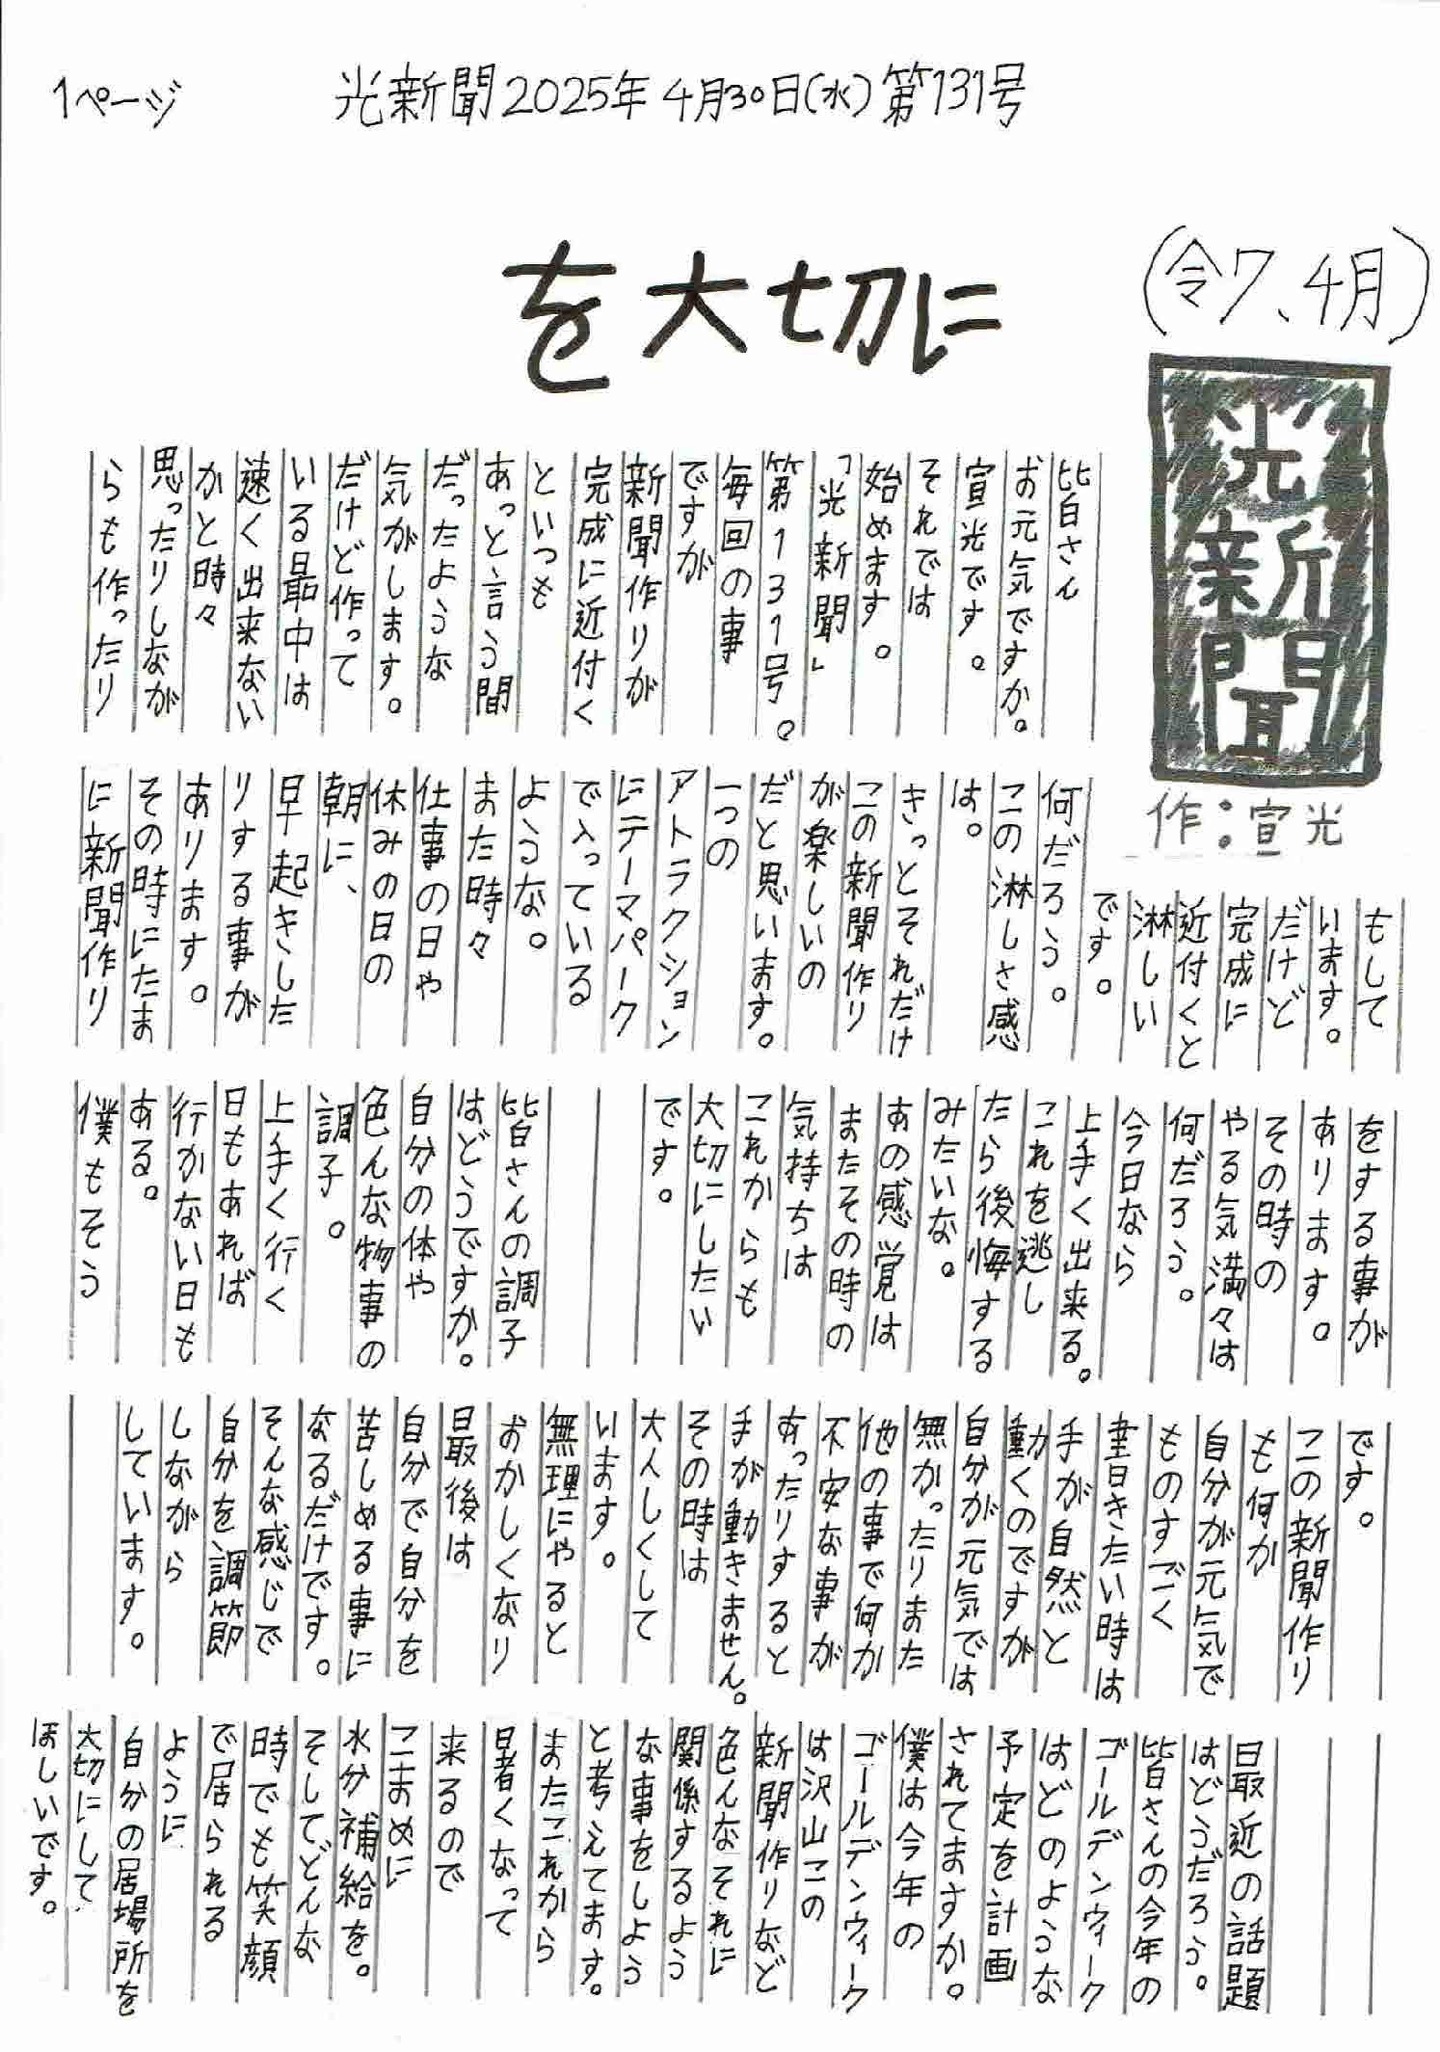 1ページ
光新聞2025年4月30日(水)第131号
を大切に
(令7、4月)
光新聞
作：宣光
皆さん
お元気ですか。
宣光です。
それでは
始めます。
「光新聞」
第131号。
毎回の事
ですが
新聞作りが
完成に近付く
といつも
あっと言う間
だったような
気がします。
だけど作って
いる最中は
速く出来ない
かと時々
思ったりしなが
らも作ったり
もして
います。
だけど
完成に
近付くと
淋しい
です。
何だろう。
この淋しさ感
は。
きっとそれだけ
この新聞作り
が楽しいの
だと思います。
一つの
アトラクション
にテーマパーク
で入っている
ような。
また時々
仕事の日や
休みの日の
朝に、
早起きした
りする事が
あります。
その時にたま
に新聞作り
をする事が
あります。
その時の
やる気満々は
何だろう。
今日なら
上手く出来る。
これを逃し
たら後悔する
みたいな。
あの感覚は
またその時の
気持ちは
これからも
大切にしたい
です。
皆さんの調子
はどうですか。
自分の体や
色んな物事の
調子。
上手く行く
日もあれば
行かない日も
ある。
僕もそう
です。
この新聞作り
も何か
自分が元気で
ものすごく
書きたい時は
手が自然と
動くのですが
自分が元気では
無かったりまた
他の事で何か
不安な事が
あったりすると
手が動きません。
その時は
大人しくして
います。
無理にやると
おかしくなり
最後は
自分で自分を
苦しめる事に
なるだけです。
そんな感じで
自分を調節
しながら
しています。
最近の話題
はどうだろう。
皆さんの今年の
ゴールデンウィーク
はどのような
予定を計画
されてますか。
僕は今年の
ゴールデンウィーク
は沢山この
新聞作りなど
色んなそれに
関係するよう
な事をしよう
と考えてます。
またこれから
暑くなって
来るので
こまめに
水分補給を。
そしてどんな
時でも笑顔
で居られる
ように
自分の居場所を
大切にして
ほしいです。